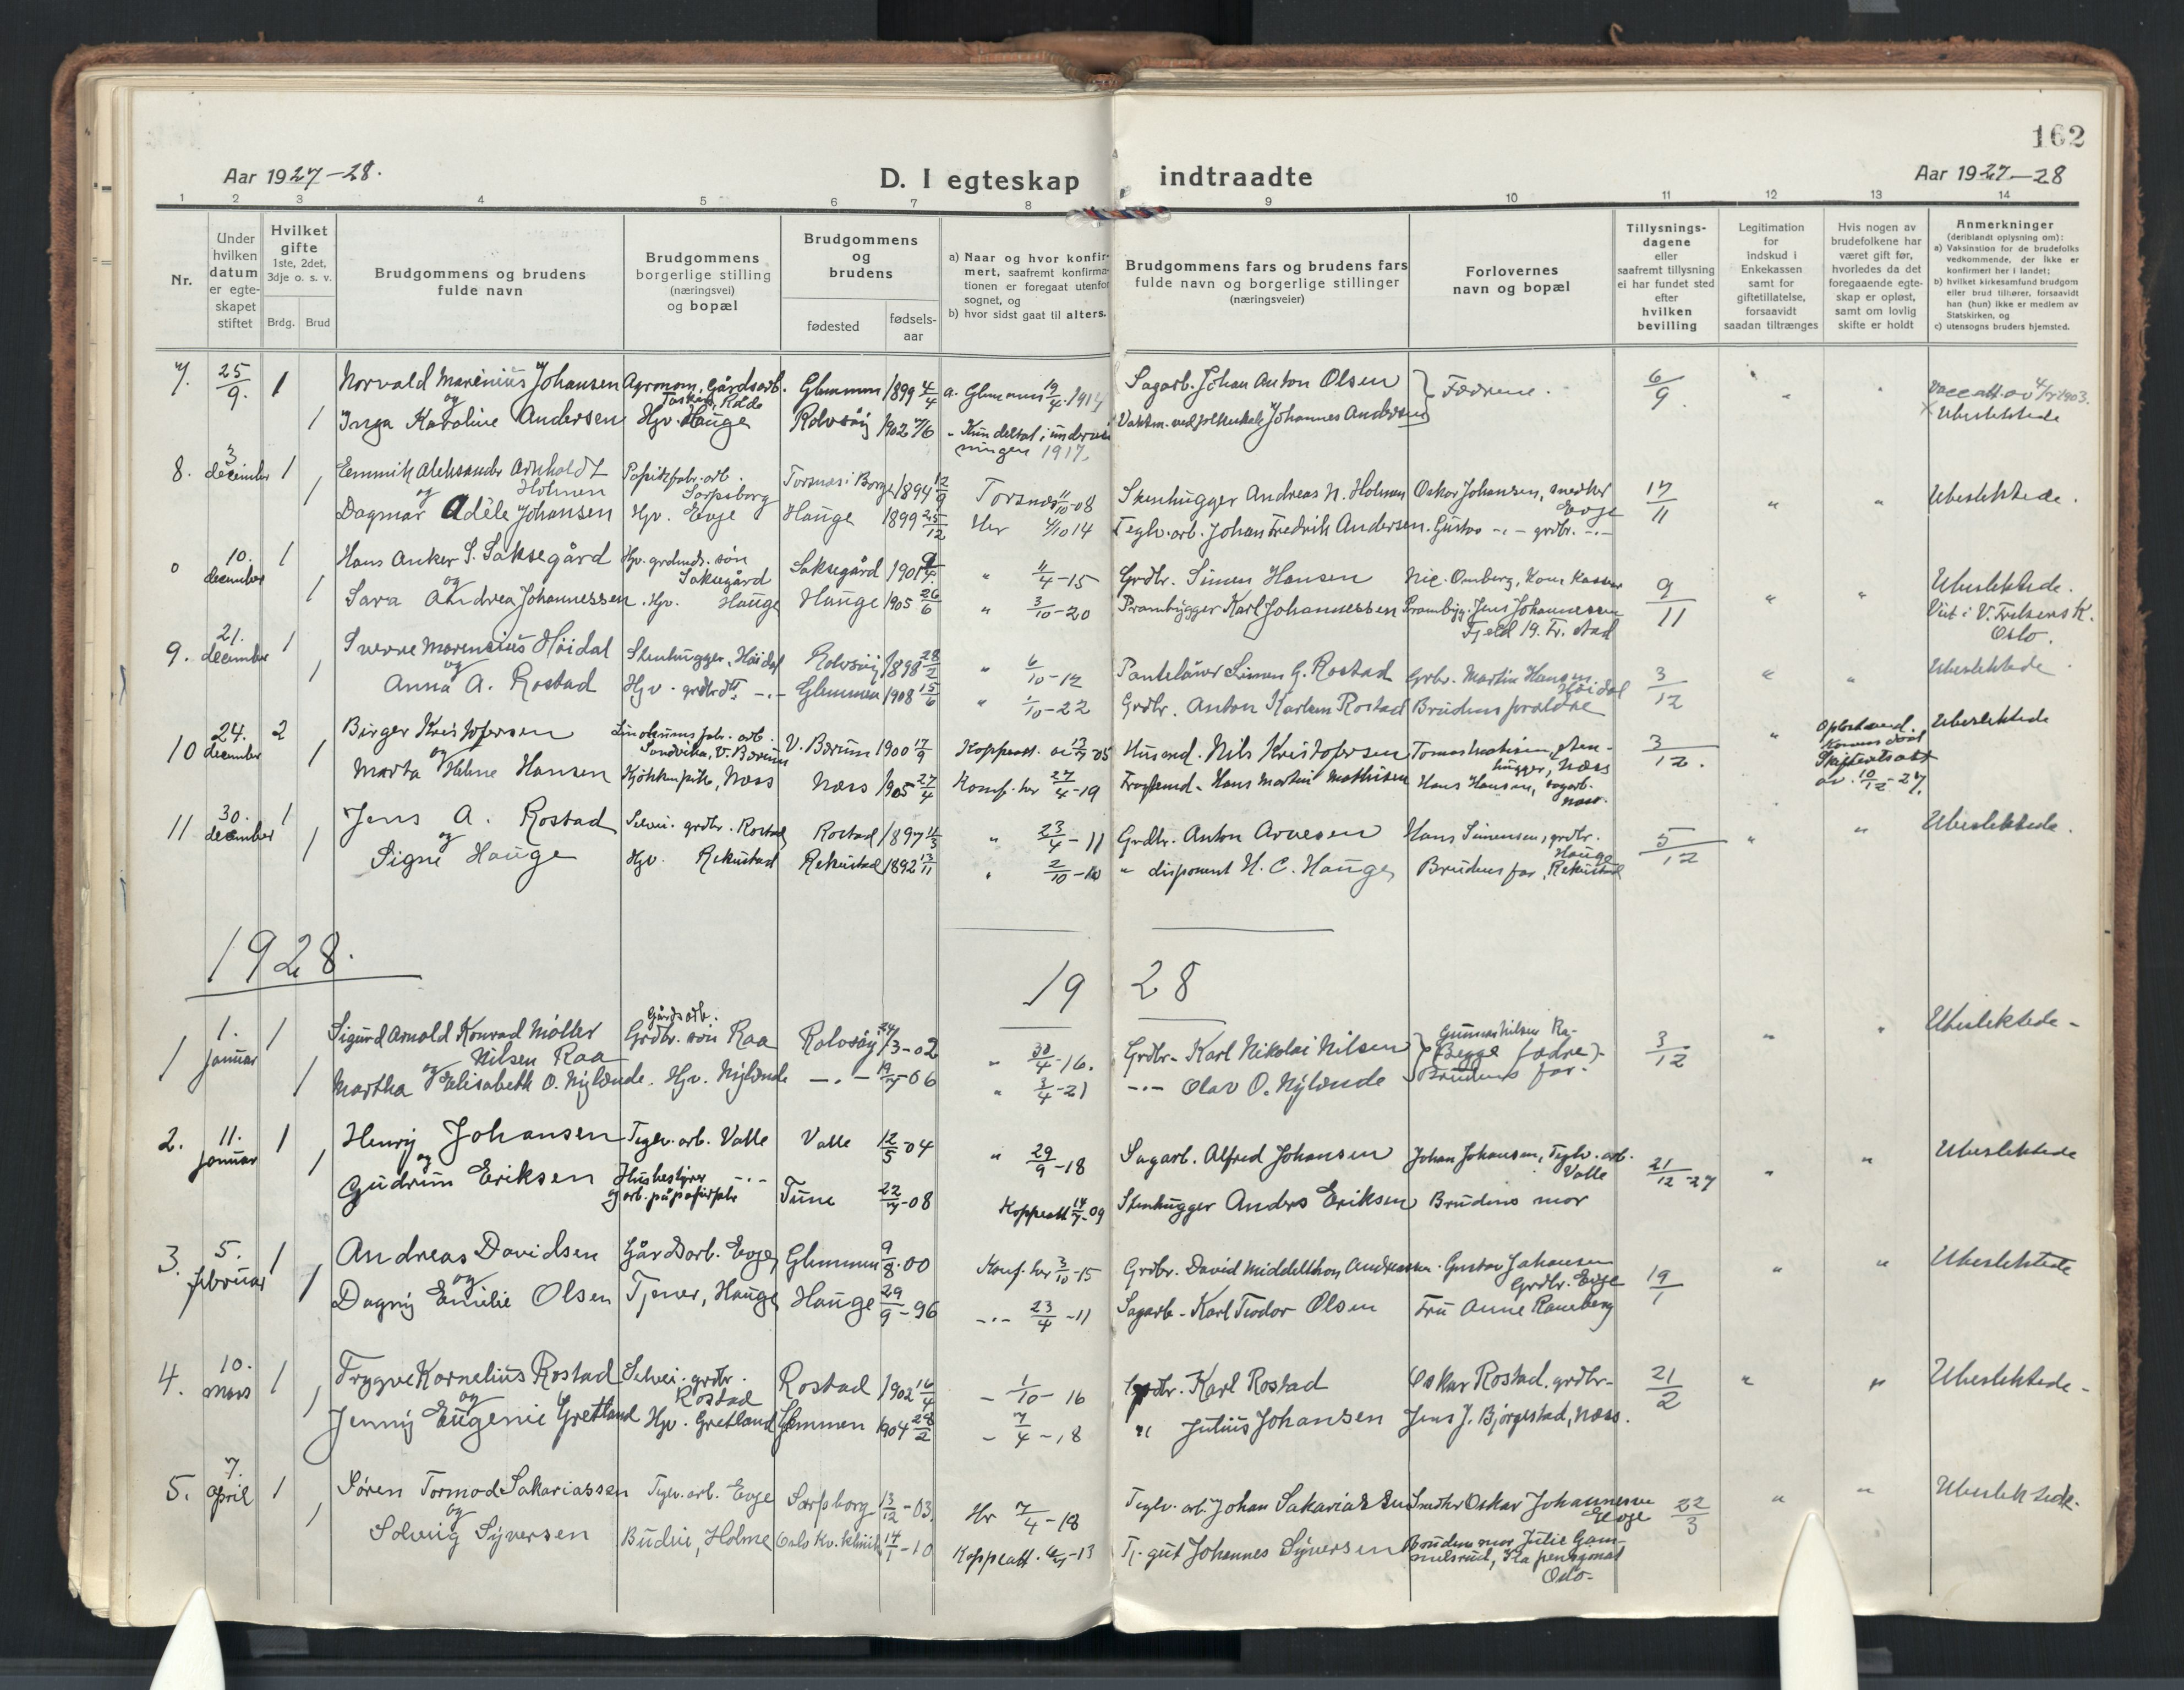 162
Aar 1927-28.
D. I egteskap indtraadte
Aar 1927-28
1 2 3 4 5 6 7 8 9 10 11 12 13 14
Nr.
Under hvilken datum er egteskapet stiftet
Hvilket gifte 1ste, 2det, 3dje o. s. v.
Brdg. Brud
Brudgommens og brudens fulde navn
Brudgommens borgerlige stilling (næringsvei) og bopæl
Brudgommens og brudens
fødested
fødselsaar
a) Naar og hvor konfirmert, saafremt konfirmationen er foregaat utenfor sognet, og
b) hvor sidst gaat til alters.
Brudgommens fars og brudens fars fulde navn og borgerlige stillinger (næringsveier)
Forlovernes navn og bopæl
Tillysningsdagene eller saafremt tillysning ei har fundet sted efter hvilken bevilling
Legitimation for Indskud i Enkekassen samt for giftetillatelse, forsaavidt saadan tiltrænges
Hvis nogen av brudefolkene har været gift før, hvorledes da det foregaaende egteskap er opløst, samt om lovlig skifte er holdt
Anmerkninger (deriblandt oplysning om):
a) Vaksination for de brudefolks vedkommende, der ikke er konfirmert her i landet;
b) hvilket kirkesamfund brudgom eller brud tilhører, forsaavidt han (hun) ikke er medlem av Statskirken, og
c) utensogns bruders hjemsted.
7. 25/9. 1 Norvald Marenius Johansen Agronom, Gårdsarb. Råde Glemmen 1899 4/4 a. Glemmen 19/4 1914 Sagarb. Johan Anton Olsen Fædrene. 6/9
og
1 Inga Karoline Andersen Hjv. Hauge Rolvsøy 1902 Kun deltat i undervisningen 1917. Johannes Andersen Ubeslektede
8. 3 december 1 Emmik Aleksander Arnholdt Holmen Sarpsborg Torsnæs i Borge 1894 12/9 Torsnæs 11/10-08 Stenhugger Andreas N. Holmen Oskar Johansen, snedker Evje 17/11 Ubeslektede.
og
1 Dagmar Adèle Johansen Hjv. Evje Hauge 1899 25/12 Her 4/10 14 Teglv. arb. Johan Fredrik Andersen. Gustav -"- grdbr. -"-
0 10. december 1 Hans Anker S. Saksegård Hjv. grdmds. søn Saksegård Saksegård 1901 " 11/4-15 Grdbr. Simen Hansen Nic. Omberg, Kom Kasser 9/11 Ubeslektede.
og
1 Sara Andrea Johannessen. Hjv. Hauge Hauge 1905 26/6 " 3/10-20 Prambygger Karl Johannessen Prambygg. Jens Johannessen Fjeld 19. Fr. stad Viet i V. Frelsers K. Oslo.
9. 21. december 1 Sverre Marensius Høidal Stenhugger, Høidal Rolvsøy 1898 28/2 " 6/10-12 Simen G. Rostad Grbr. Martin Hansen Høidal 3/12 Ubeslektede.
og
1 Anna A. Rostad Hjv. grdbrdtr. -"- Glemmen 1908 15/6 " 1/10-22 Grdbr. Anton Karlsen Rostad Brudens forældre
10 24. december 2 Birger Kristofersen Linoleums fabr. arb. Sandvika, V. Bærum V. Bærum 1900 17/9 Koppeatt. av 13/7 05 Husmd. Nils Kristofersen Tomas Mathisen, stenhugger, Næss 3/12. Skifteattest av. 10/12-27. Ubeslektede
og
1 Marta Helene Hansen Kjøkkenpike, Næss Næss 1905 27/4 Konf. her 27/4-19 Hans Martin Mathisen Hans Hansen, sagarb. Næss.
11 30. december 1 Jens A. Rostad Selvei. grdbr. Rostad Rostad 1897 11/3 " 23/4-11 Grdbr. Anton Arvesen Hans Simensen, grdbr. Hauge 5/12 Ubeslektede.
og
1 Signe Hauge Hjv. Rekustad Rekustad 1892 13/11 " 2/10-10 " disponent H. C. Hauge, Brudens far, Rekustad
1928.
19 28
1 1. januar 1 Sigurd Arnold Konrad Møller Nilsen Raa Gårdsarb. Grdbr. søn Raa Rolvsøy 24/3-02 " 30/4-16. Grdbr. Karl Nikolai Nilsen Gunnar Nilsen Ra- (Begge fædre)- 3/12 Ubeslektede-
og
1 Martha Elisabeth O. Nylænde. Hjv. Nylænde -"- 19/7-06 " 3/4-21 -"- Olav O. Nylænde Brudens far.
2. 11. januar 1 Henry Johansen Teglv. arb. Valle Valle 12/5 04 " 29/9-18 Sagarb. Alfred Johansen Johan Johansen, Teglv. arb. Valle 21/12-27 Ubeslektede
og
1 Gudrun Eriksen Husbestyrer -"- og arb. på papirfabr Tune 22/7-08 Koppeatt 14/7-09 Stenhugger Anders Eriksen Brudens mor
3. 5. februar 1 Andreas Davidsen Gårdsarb. Evje, Glemmen 9/8-00 Konf. her 3/10-15 Grdbr. David Middelthon Andreassen. Gustav Johansen Grdbr. Evje 19/1 Ubeslektede
og
1 Dagny Emilie Olsen Tjener, Hauge Hauge 29/9-96 -"- 23/4-11 Sagarb. Karl Teodor Olsen Fru Anne Ramberg
4. 10. mars 1 Trygve Kornelius Rostad Selvei. grdbr. Rostad Rostad 1902 16/4 - 1/10-16 Grdbr. Karl Rostad Oskar Rostad. grdbr- 21/2 Ubeslektede-
og
1 Jenny Eugenie Gretland Hjv. Gretland Glemmen 1904 28/2 - 7/4-18 " Julius Johansen Jens J. Bjørgestad, Næss.
5. 7. april 1 Søren Tormod Sakariassen Teglv. arb. Evje Sarpsborg 13/12-03. Her 7/4-18 Teglv. arb. Johan Sakariassen Snedker Oskar Johannessen Evje 22/3 Ubeslektede.
og
1 Solveig Syversen Budeie, Holme Oslo Kv. klinik 14/1-10 Koppeatt. -13 Tj. gut Johannes Syversen Brudens mor Julie Gammelsrud, pensjonat Oslo-